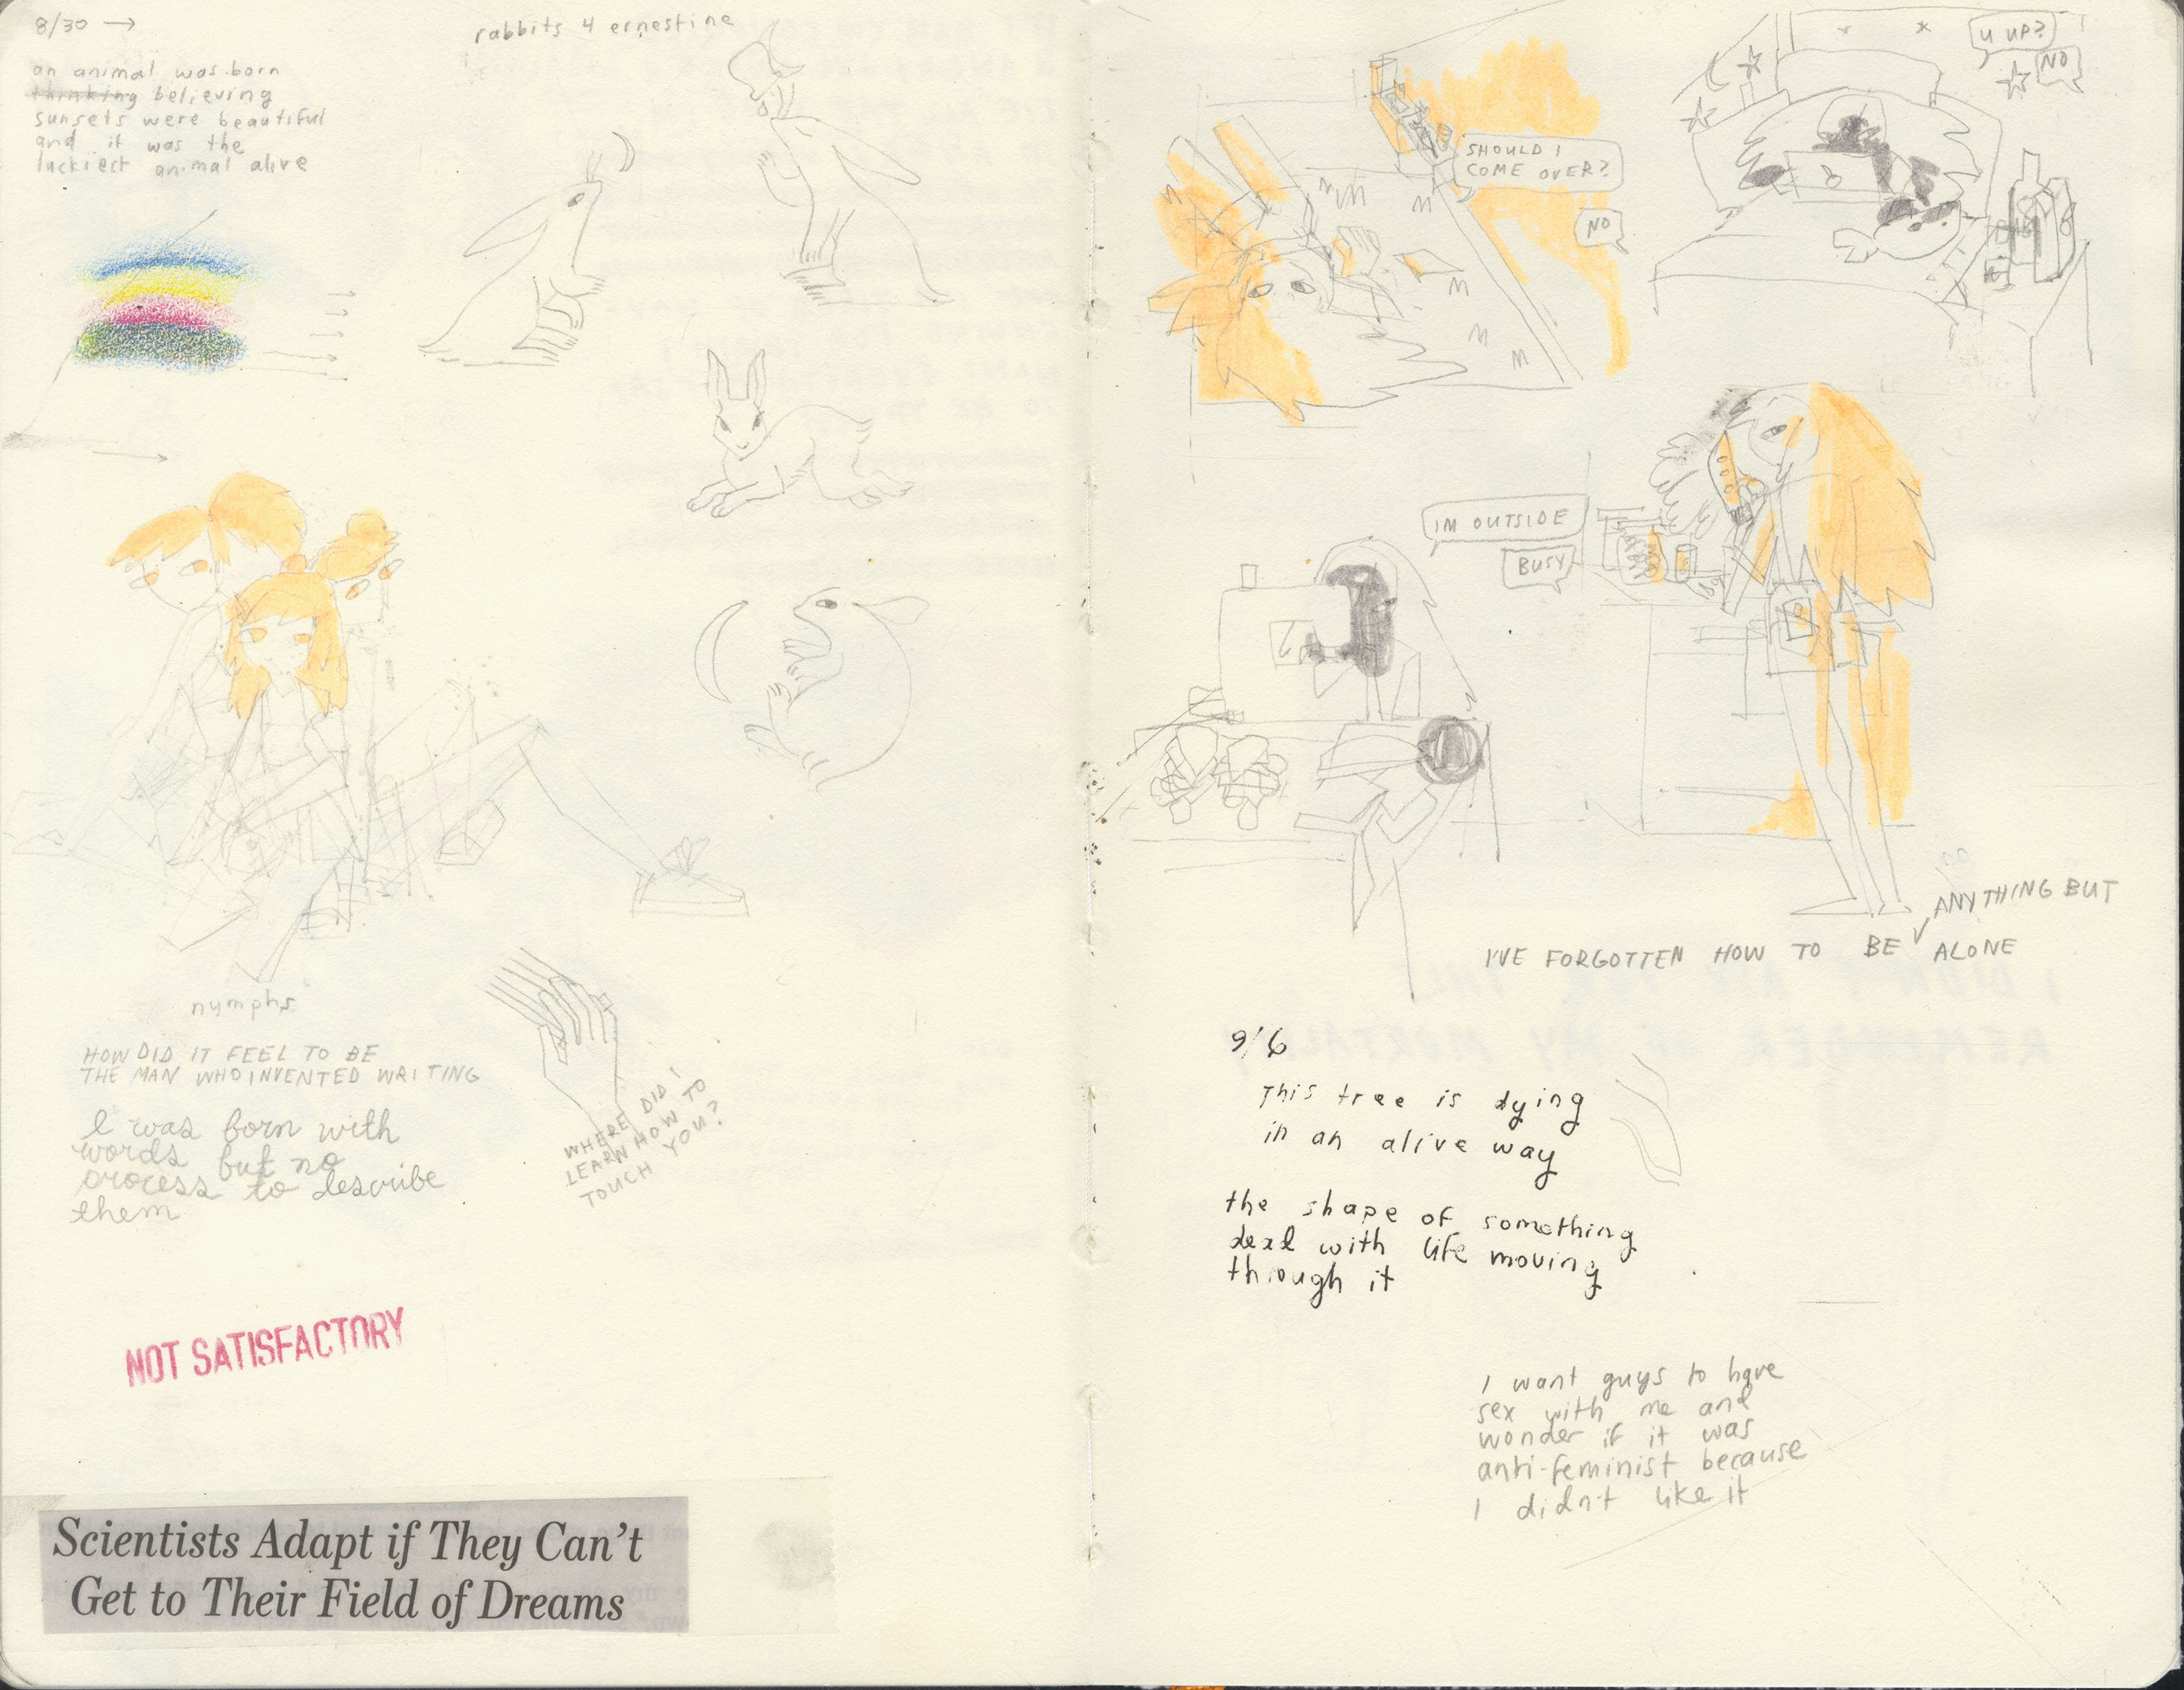 8/30 →
an animal was born
thinking believing
sunsets were beautiful
and it was the
luckiest animal alive
rabbits 4 ernestine
nymphs
HOW DID IT FEEL TO BE
THE MAN WHO INVENTED WRITING
I was born with
words but no
process to describe
them
WHERE DID I
LEARN HOW TO
TOUCH YOU?
NOT SATISFACTORY
Scientists Adapt if They Can't
Get to Their Field of Dreams
SHOULD I
COME OVER?
NO
U UP?
NO
IM OUTSIDE
BUSY
ANYTHING BUT
I'VE FORGOTTEN HOW TO BE ALONE
9/6
This tree is dying
in an alive way
the shape of something
dead with life moving
through it
I want guys to have
sex with me and
wonder if it was
anti-feminist because
I didn't like it